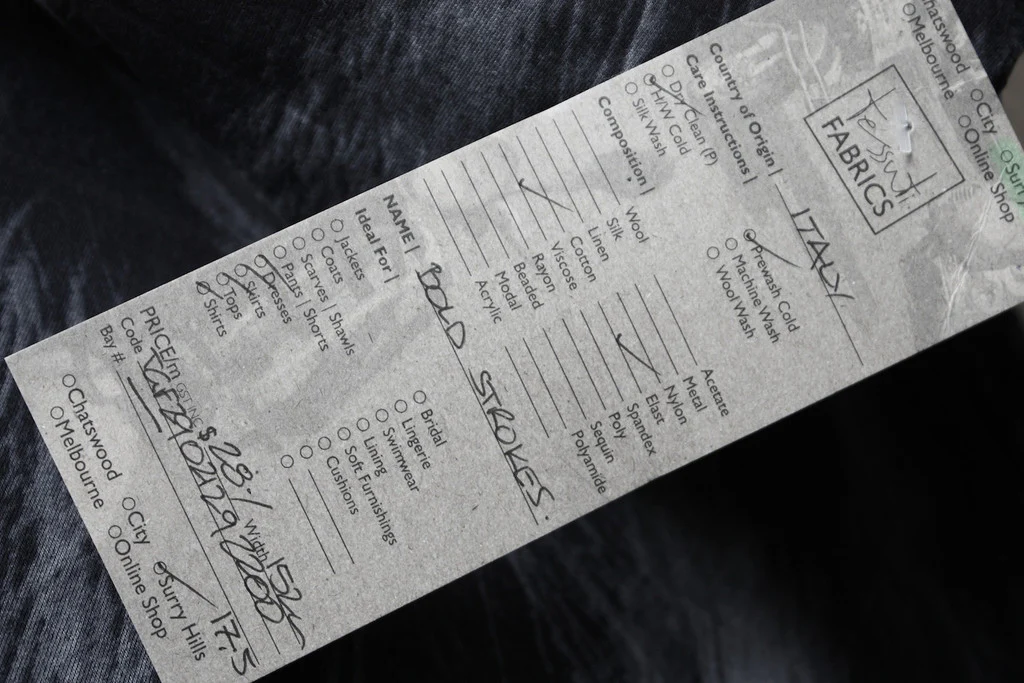 Chatswood
Melbourne
City
Online Shop
Surry
tessuti
FABRICS
Country of Origin | ITALY
Care Instructions |
Dry Clean (P)
H/W Cold
Silk Wash
Prewash Cold
Machine Wash
Wool Wash
Composition |
Wool
Silk
Linen
Cotton
Viscose
Rayon
Beaded
Modal
Acrylic
Acetate
Metal
Nylon
Elast
Spandex
Poly
Sequin
Polyamide
NAME | BOLD STROKES.
Ideal For |
Jackets
Coats
Scarves | Shawls
Pants | Shorts
Dresses
Skirts
Tops
Shirts
Bridal
Lingerie
Swimwear
Lining
Soft Furnishings
Cushions
PRICE/m GST INC $28.- Width
Code
Bay # 17.5
Chatswood
Melbourne
City
Online Shop
Surry Hills